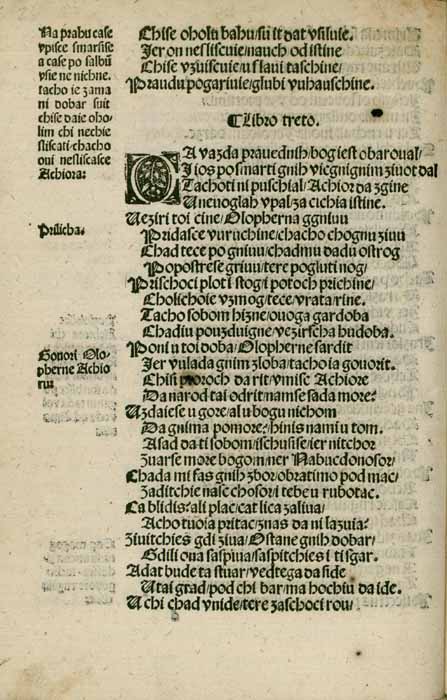 Na prahu case
vpisce smarsise
a case po salbũ
vsie ne nichne.
tacho ie zama
ni dobar suit
chise daie oho-
lim chi nechie
slisati/chacho
oui neslisasce
Achiora:
Chise oholu bahu/su it dat vsiluie.
Jer on neslisciuie/nauch od istine
Chise vzuiscuie/u slaui taschine/
Praudu pogariuie/glubi vuhauschine.
¶ Libro treto.
DA vazda prauednih/bog iest obaroual/
J ios po smarti gnih vicgnignim ziuot dal
Tachoti ni puschial/Achior da zgine
U neuoglah vpal/za cichia istine.
Uezir i toi cine/Olopherna ggniuu
Prilicha.
Pridasce vuruchine/chacho chognu ziuu
Chad tece po gniuu/chadmu dadu ostrog
Popostrese griuu/tere pogluti nog/
Prischoci plot i stog/i potoch prichine/
Cholichoie vzmog/tece/vrata/rine.
Tacho sobom hizne/ouoga gardoba
Chadiu pouzduigne/vezirscha hudoba.
Gouori Olo-
pherne Achio
ru
Poni u toi doba/Olopherne sardit
Jer vulada gnim zloba/tacho ia gouorit.
Chisi poroch da rit/vmise Achiore
Da narod tai odrit/namse sada more?
Uzdaiese u gore/al u bogu nichom
Da gnima pomore?/hinis nami u tom.
A sad da ti sobom/ischusise/ier nitchor
Zuarse more bogom/ner Nabucdonosor/
Chada mi sas gnih zbor/obratimo pod mac/
Zaditchie nase chosor/i tebe u rubotac.
Ca blidis?ali plac/cat lica zaliua/
Acho tuoia pritac/znas da ni lazuia?
Ziuitchies gdi ziua/Ostane gnih dobar/
Gdili ona saspiua/saspitchies i ti sgar.
A dat bude ta stuar/vedtega da side
U tai grad/pod chi bar/ma hochiu da ide.
U chi chad vnide/tere zaschoci rou/